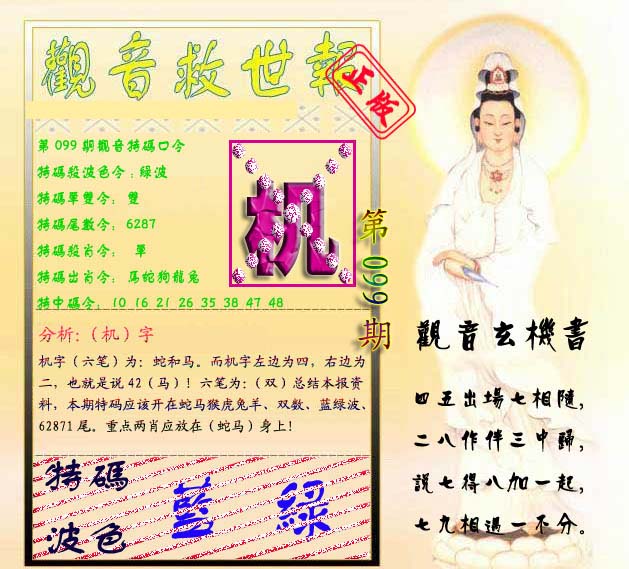 觀音救世報
正版
第099期觀音特碼口令
特碼殺波色令:綠波
特碼單雙令: 雙
特碼尾數令: 6287
特碼殺肖令: 單
特碼出肖令: 馬蛇狗龍兔
特中碼令: 10 16 21 26 35 38 47 48
机
第099期
分析:（机）字
机字（六笔）为：蛇和马。而机字左边为四，右边为
二，也就是说42（马）！六笔为：（双）总结本报资
料，本期特码应该开在蛇马猴虎兔羊、双数、蓝绿波、
62871尾。重点两肖应放在（蛇马）身上！
特碼
波色
藍 綠
觀音玄機書
四五出場七相隨，
二八作伴三中歸，
説七得八加一起，
七九相遇一不分。